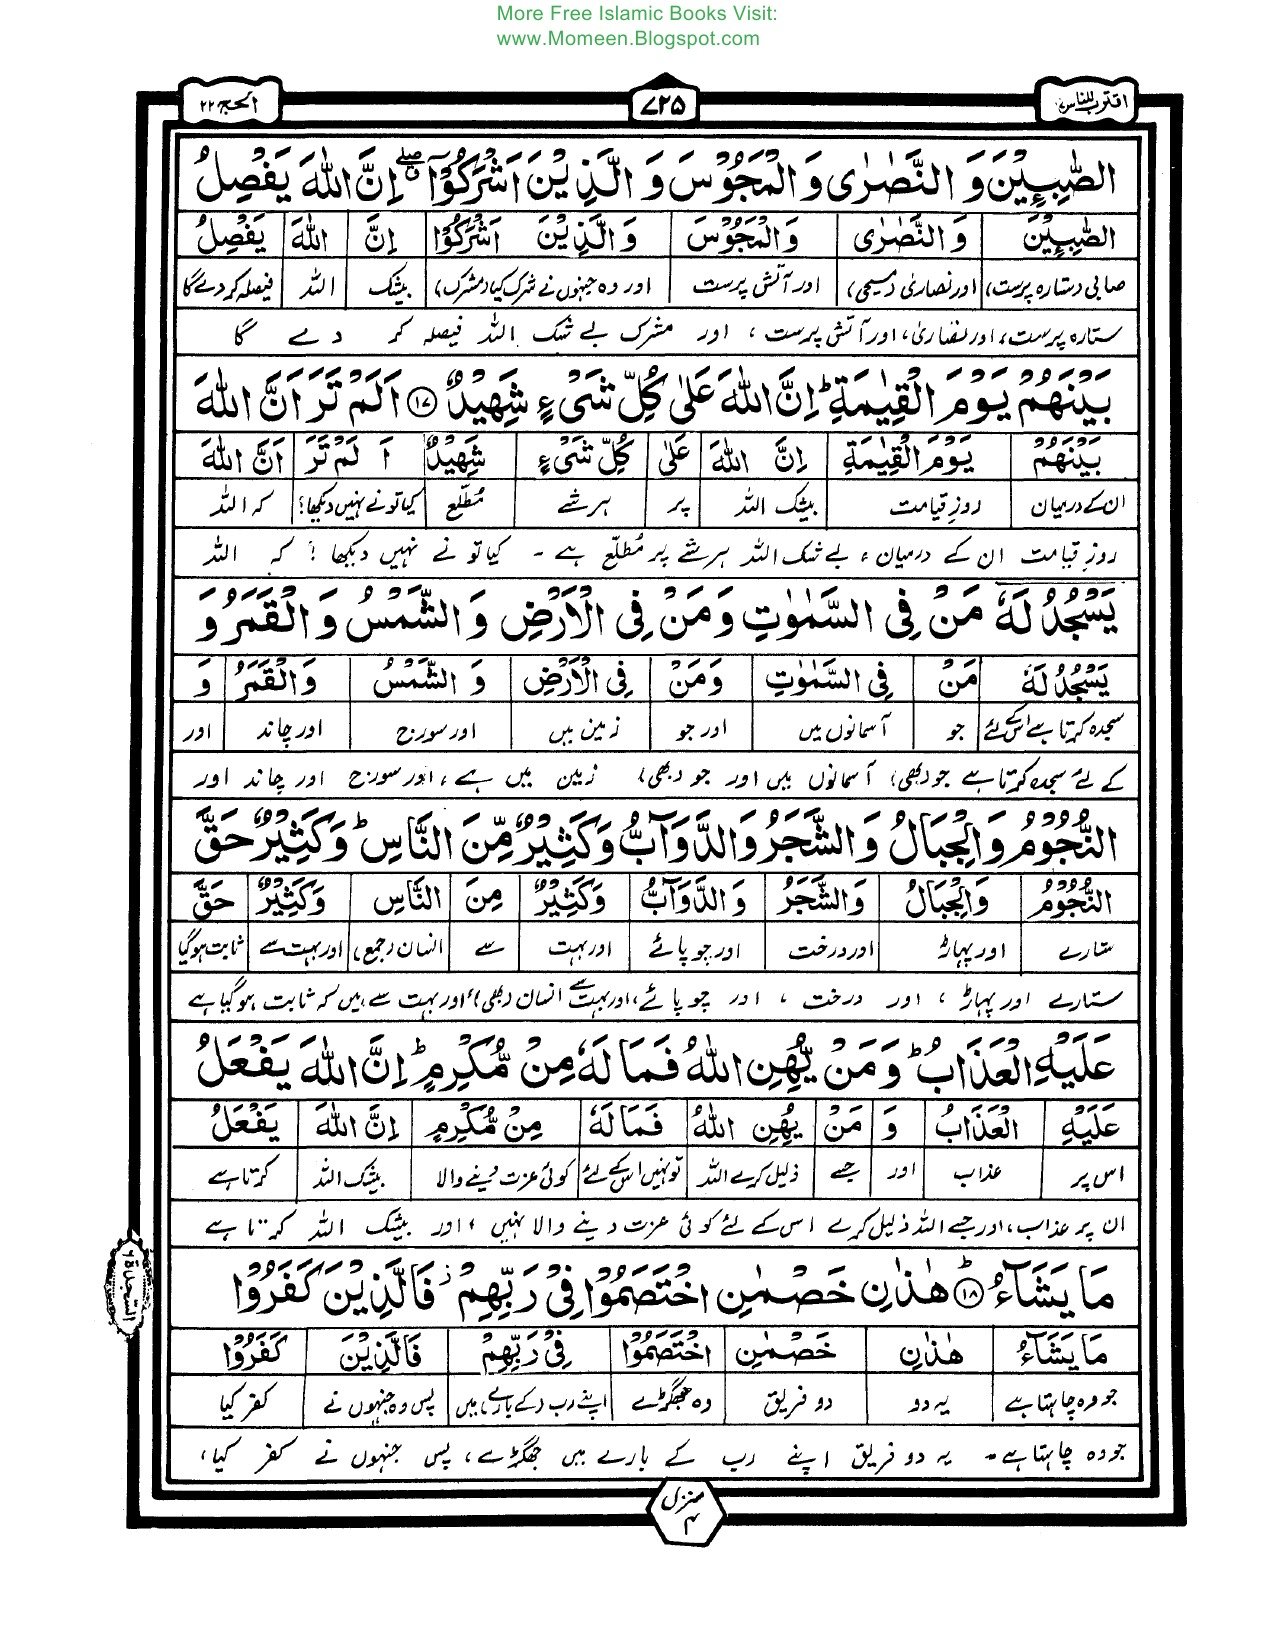 More Free Islamic Books Visit:
www.Momeen.Blogspot.com
اقترب للناس ۱۷
۷۲۵
الحج ۲۲
الصّٰبِـِٕيْنَ وَ النَّصٰرٰى وَ الْمَجُوْسَ وَ الَّذِيْنَ اَشْرَكُوْۤا ۖۗ اِنَّ اللّٰهَ يَفْصِلُ
الصّٰبِـِٕيْنَ وَ النَّصٰرٰى وَالْمَجُوْسَ وَالَّذِيْنَ اَشْرَكُوْٓا اِنَّ اللّٰهَ يَفْصِلُ
صابی (ستارہ پرست) اور نصاریٰ (مسیحی) اور آتش پرست اور وہ جنہوں نے شرک کیا (مشرک) بیشک اللہ فیصلہ کردے گا
ستارہ پرست، اور نصاریٰ، اور آتش پرست، اور مشرک بے شک اللہ فیصلہ کر دے گا
بَيْنَهُمْ يَوْمَ الْقِيٰمَةِ ؕ اِنَّ اللّٰهَ عَلٰى كُلِّ شَىْءٍ شَهِيْدٌ ۱۷ اَلَمْ تَرَ اَنَّ اللّٰهَ
بَيْنَهُمْ يَوْمَ الْقِيٰمَةِ اِنَّ اللّٰهَ عَلٰى كُلِّ شَىْءٍ شَهِيْدٌ اَ لَمْ تَرَ اَنَّ اللّٰهَ
ان کے درمیان روزِ قیامت بیشک اللہ پر ہر شے مُطّلع کیا تو نے نہیں دیکھا؟ کہ اللہ
روزِ قیامت ان کے درمیان، بے شک اللہ ہر شے پر مُطّلع ہے ۔ کیا تو نے نہیں دیکھا ؟ کہ اللہ
يَسْجُدُ لَهٗ مَنْ فِى السَّمٰوٰتِ وَمَنْ فِى الْاَرْضِ وَ الشَّمْسُ وَ الْقَمَرُ وَ
يَسْجُدُ لَهٗ مَنْ فِى السَّمٰوٰتِ وَمَنْ فِى الْاَرْضِ وَ الشَّمْسُ وَالْقَمَرُ وَ
سجدہ کرتا ہے اس کے لئے جو آسمانوں میں اور جو زمین میں اور سورج اور چاند اور
کے لئے سجدہ کرتا ہے جو (بھی) آسمانوں میں اور جو (بھی) زمین میں ہے، اور سورج اور چاند اور
النُّجُوْمُ وَالْجِبَالُ وَ الشَّجَرُ وَالدَّوَآبُّ وَكَثِيْرٌ مِّنَ النَّاسِ ؕ وَكَثِيْرٌ حَقَّ
النُّجُوْمُ وَالْجِبَالُ وَالشَّجَرُ وَالدَّوَآبُّ وَكَثِيْرٌ مِنَ النَّاسِ وَكَثِيْرٌ حَقَّ
ستارے اور پہاڑ اور درخت اور چوپائے اور بہت سے انسان (جمع) اور بہت سے ثابت ہوگیا
ستارے اور پہاڑ، اور درخت، اور چوپائے، اور بہت سے انسان (بھی) اور بہت سے ہیں کہ ثابت ہوگیا ہے
عَلَيْهِ الْعَذَابُ ؕ وَمَنْ يُّهِنِ اللّٰهُ فَمَا لَهٗ مِنْ مُّكْرِمٍ ؕ اِنَّ اللّٰهَ يَفْعَلُ
عَلَيْهِ الْعَذَابُ وَ مَنْ يُهِنِ اللّٰهُ فَمَا لَهٗ مِنْ مُّكْرِمٍ اِنَّ اللّٰهَ يَفْعَلُ
اس پر عذاب اور جسے ذلیل کرے اللہ تو نہیں اس کے لئے کوئی عزت دینے والا بیشک اللہ کرتا ہے
ان پر عذاب، اور جسے اللہ ذلیل کرے اس کے لئے کوئی عزت دینے والا نہیں، اور بیشک اللہ کرتا ہے
مَا يَشَآءُ ؕ ۱۸ هٰذٰنِ خَصْمٰنِ اخْتَصَمُوْا فِىْ رَبِّهِمْ ؗ فَالَّذِيْنَ كَفَرُوْا
مَا يَشَآءُ هٰذٰنِ خَصْمٰنِ اخْتَصَمُوْا فِىْ رَبِّهِمْ فَالَّذِيْنَ كَفَرُوْا
جو وہ چاہتا ہے یہ دو دو فریق وہ جھگڑے اپنے رب (کے بارے) میں پس وہ جنہوں نے کفر کیا
جو وہ چاہتا ہے ۔ یہ دو فریق اپنے رب کے بارے میں جھگڑے، پس جنہوں نے کفر کیا،
منزل ۴